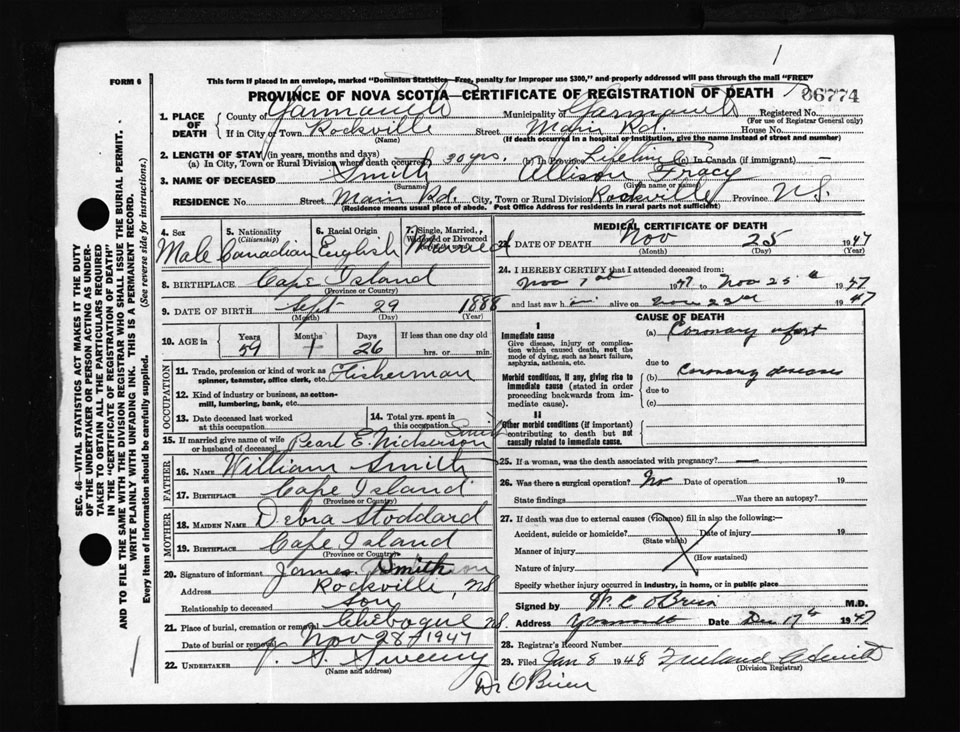 FORM 6
This form if placed in an envelope, marked "Dominion Statistics—Free, penalty for improper use $300," and properly addressed will pass through the mail "FREE"
1
PROVINCE OF NOVA SCOTIA—CERTIFICATE OF REGISTRATION OF DEATH
06774
1. PLACE OF DEATH
County of Yarmouth Municipality of Yarmouth Registered No.
(For use of Registrar General only)
If in City or Town Rockville Street Main Rd. House No.
(Name) (If death occurred in a hospital or institution, give the name instead of street and number)
2. LENGTH OF STAY (in years, months and days)
(a) In City, Town or Rural Division where death occurred 30 yrs. (b) In Province Lifetime (c) In Canada (if immigrant) —
3. NAME OF DECEASED Smith Allison Tracy
(Surname) (Given name or names)
RESIDENCE No. Street Main Rd. City, Town or Rural Division Rockville Province N.S.
(Residence means usual place of abode. Post Office Address for residents in rural parts not sufficient)
4. Sex Male
5. Nationality (Citizenship) Canadian
6. Racial Origin English
7. Single, Married, Widowed or Divorced Married
8. BIRTHPLACE Cape Island
(Province or Country)
9. DATE OF BIRTH Sept 29 1888
(Month) (Day) (Year)
10. AGE in Years 59 Months 1 Days 26 If less than one day old hrs. or min.
OCCUPATION
11. Trade, profession or kind of work as spinner, teamster, office clerk, etc. Fisherman
12. Kind of industry or business, as cotton-mill, lumbering, bank, etc.
13. Date deceased last worked at this occupation
14. Total yrs. spent in this occupation
15. If married give name of wife or husband of deceased Pearl E. Nickerson Smith
FATHER
16. NAME William Smith
17. BIRTHPLACE Cape Island
(Province or Country)
MOTHER
18. MAIDEN NAME Debra Stoddard
19. BIRTHPLACE Cape Island
(Province or Country)
20. Signature of informant James Smith
Address Rockville, NS
Relationship to deceased son
21. Place of burial, cremation or removal Chebogue NS.
Date of burial or removal Nov 28 1947
22. UNDERTAKER Sweeny
(Name and address)
Dr O'Brien
MEDICAL CERTIFICATE OF DEATH
23. DATE OF DEATH Nov 25 1947
(Month) (Day) (Year)
24. I HEREBY CERTIFY that I attended deceased from:
Nov 1st 1947 to Nov 25th 1947
and last saw h im alive on Nov 23rd 1947
CAUSE OF DEATH
I
Immediate cause
Give disease, injury or complication which caused death, not the mode of dying, such as heart failure, asphyxia, asthenia, etc.
(a) Coronary
due to
Morbid conditions, if any, giving rise to immediate cause (stated in order proceeding backwards from immediate cause).
(b) Coronary disease
due to
(c)
II
Other morbid conditions (if important) contributing to death but not causally related to immediate cause.
25. If a woman, was the death associated with pregnancy? —
26. Was there a surgical operation? No Date of operation 19
State findings Was there an autopsy?
27. If death was due to external causes (violence) fill in also the following:—
Accident, suicide or homicide? Date of injury 19
(State which)
Manner of injury
(How sustained)
Nature of injury
Specify whether injury occurred in industry, in home, or in public place
Signed by W. C. O'Brien M.D.
Address Yarmouth Date Dec 17th 1947
28. Registrar's Record Number
29. Filed Jan 8 1948
(Division Registrar)
SEC. 46—VITAL STATISTICS ACT MAKES IT THE DUTY
OF THE UNDERTAKER OR PERSON ACTING AS UNDERTAKER TO OBTAIN ALL THE PARTICULARS REQUIRED
IN THE "CERTIFICATE OF REGISTRATION OF DEATH"
AND TO FILE THE SAME WITH THE DIVISION REGISTRAR WHO SHALL ISSUE THE BURIAL PERMIT.
WRITE PLAINLY WITH UNFADING INK. THIS IS A PERMANENT RECORD.
Every item of information should be carefully supplied. (See reverse side for instructions.)